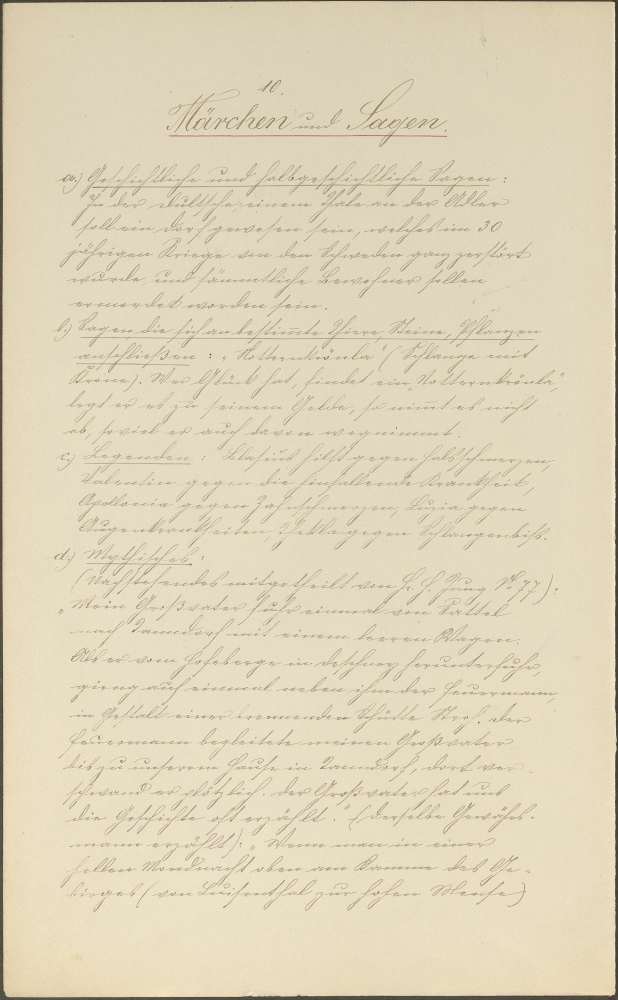 10.
Märchen und Sagen.
a.) Geschichtliche und halbgeschichtliche Sagen:
In der Bultsche, einem Thale an der Adler
soll ein Dorf gewesen sein, welches im 30
jährigen Kriege von den Schweden ganz zerstört
wurde, und sämmtliche Bewohner sollen
ermordet worden sein.
b.) Sagen die sich an bestimmte Thiere, Steine, Pflanzen
anschließen: „Notternkrönla" (Schlange mit
Krone). Wer Glück hat, findet ein „Notternkrönla",
legt er es zu seinem Gelde, so nimmt es nicht
ab, soviel er auch davon wegnimmt.
c.) Legenden: Blasius hilft gegen Halsschmerzen,
Valentin gegen die hinfallende Krankheit,
Apollonia gegen Zahnschmerzen, Luzia gegen
Augenkrankheiten, Thekla gegen Schlangenbiß.
d.) Mythisches:
(Nachstehendes mitgetheilt von H. H. Jung No 77):
„Mein Großvater fuhr einmal von Sattel
nach Tanndorf mit einem leeren Wagen.
Als er vom Hofeberge in Deschney herunterfuhr,
gieng auf einmal neben ihm der Feuermann,
in Gestalt einer brennenden Schütte Stroh. Der
Feuermann begleitete meinen Großvater
bis zu unserem Hause in Tanndorf, dort ver-
schwand er plötzlich. Der Großvater hat uns
die Geschichte oft erzählt." (Derselbe Gewährs-
mann erzählt): „Wenn man in einer
hellen Mondnacht oben am Kamme des Ge-
birges (von Luisenthal zur hohen Mense)